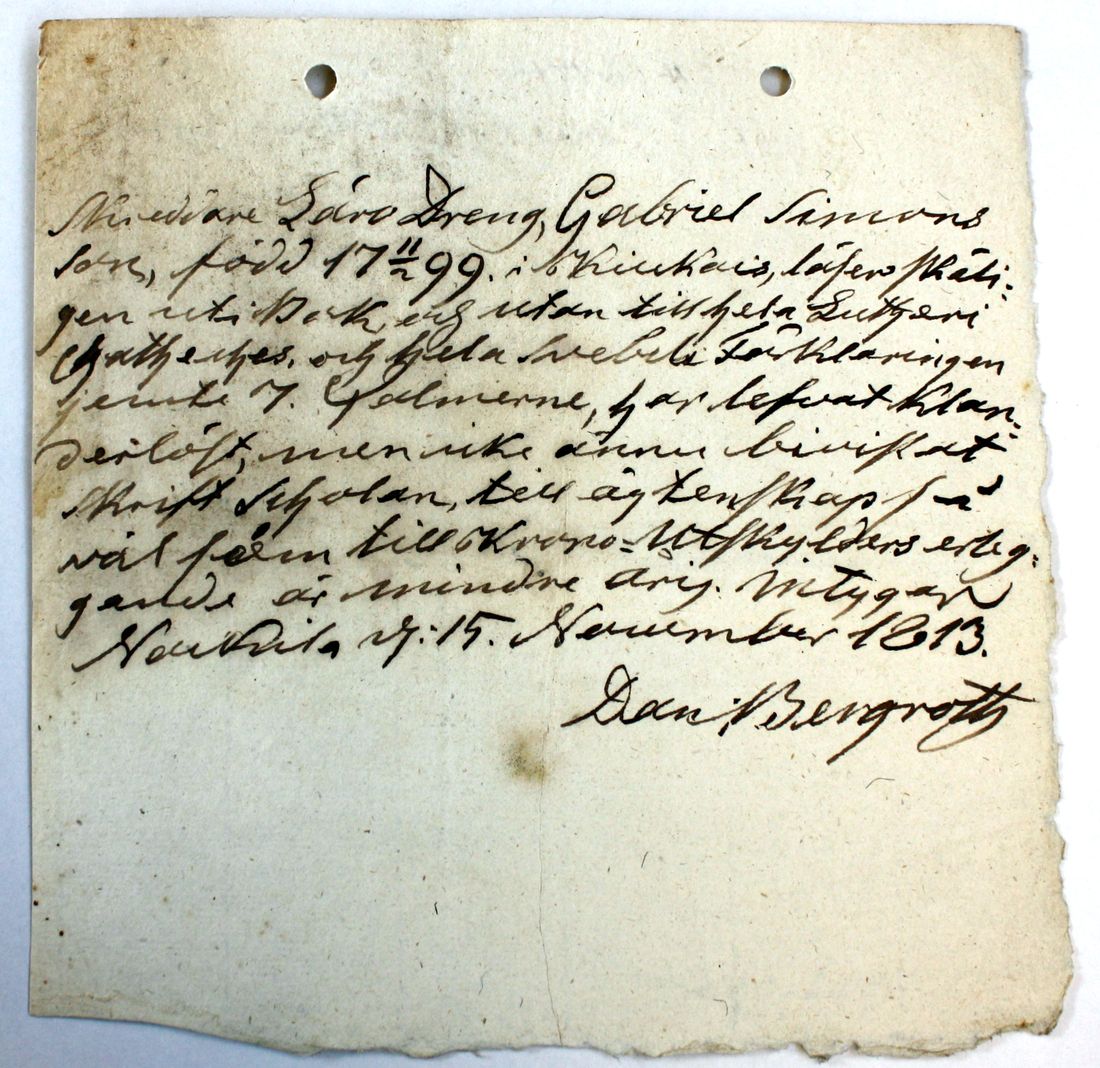 Skreddare Läro Dreng, Gabriel Simons
son, född 17 11/2 99. i Kiukais, läser skäli-
gen uti Bok, och utan till hela Lutheri
Catheches. och hela Svebelii Förklaringen
jemte 7. Psalmerne, har lefvat klan-
derlöst, men icke ännu bivistat
Skrift Scholan, till ägtenskap så
väl som till Krono-Utskylders erleg-
gande är mindre årig. Intygar
Naukila d: 15. November 1813.
Dan: Bergroth